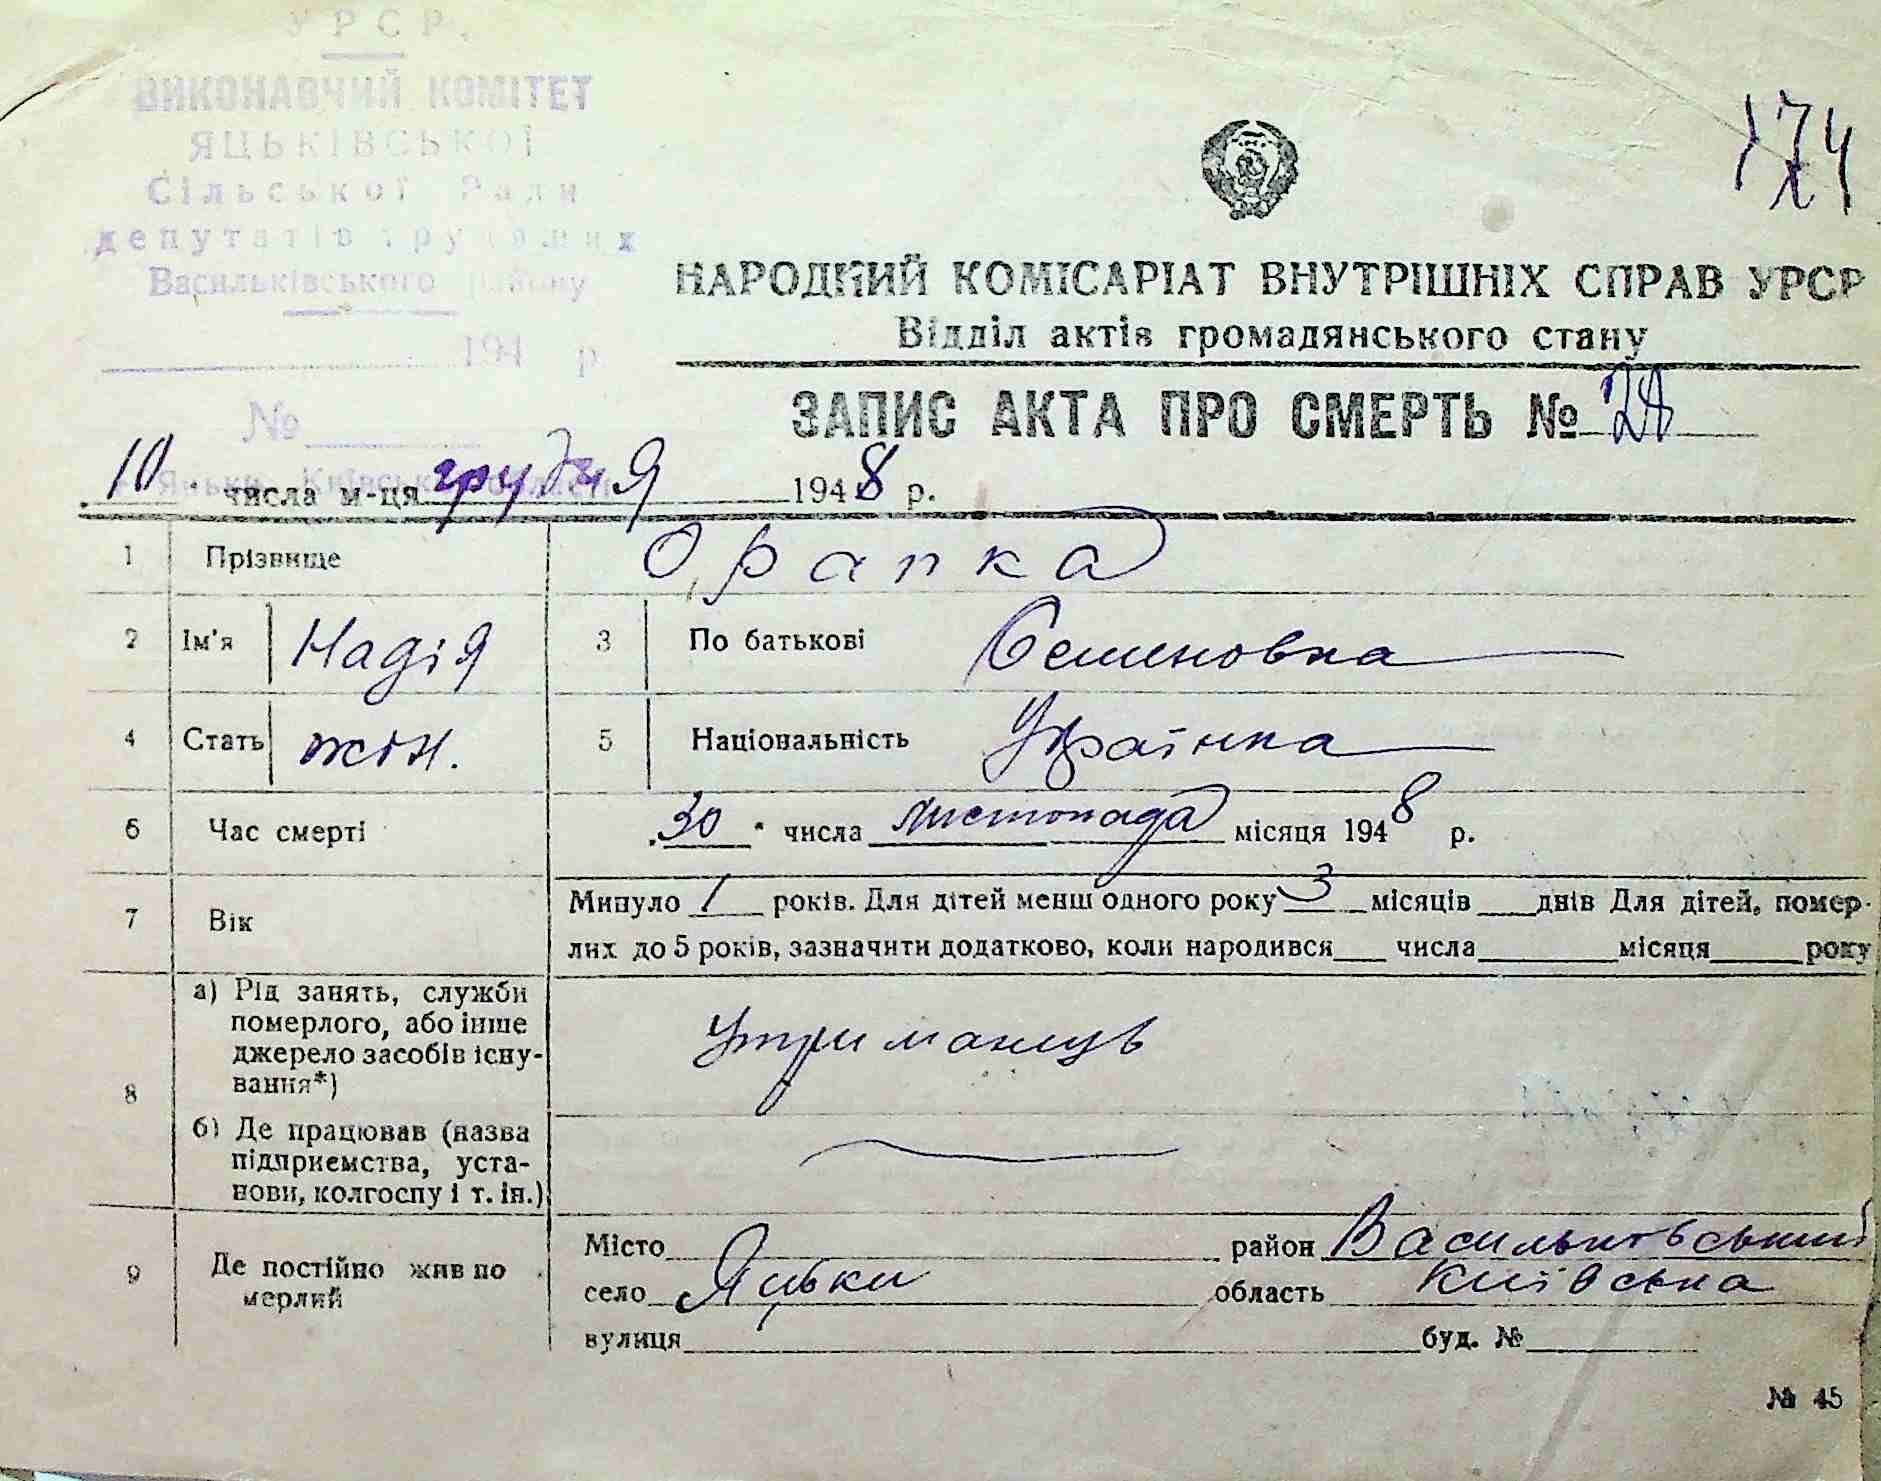 УРСР.
ВИКОНАВЧИЙ КОМІТЕТ
ЯЦЬКІВСЬКОЇ
Сільської Ради
депутатів трудящих
Васильківського району
194 р.
№
Яцьки, Київської області
174
НАРОДНИЙ КОМІСАРІАТ ВНУТРІШНІХ СПРАВ УРСР
Відділ актів громадянського стану
ЗАПИС АКТА ПРО СМЕРТЬ №
10 числа м-ця грудня 1948 р.
1 Прізвище Орапка
2 Ім'я Надія 3 По батькові Семеновна
4 Стать жін. 5 Національність Українка
6 Час смерті 30 числа листопада місяця 1948 р.
7 Вік Минуло 1 років. Для дітей менш одного року 3 місяців днів Для дітей, помер-
лих до 5 років, зазначити додатково, коли народився числа місяця року
8 а) Рід занять, служби
померлого, або інше
джерело засобів існу-
вання*) Утриманець
б) Де працював (назва
підприємства, уста-
нови, колгоспу і т. ін.)
9 Де постійно жив по
мерлий
Місто район Васильківський
село Яцьки область Київська
вулиця буд. №
№ 45